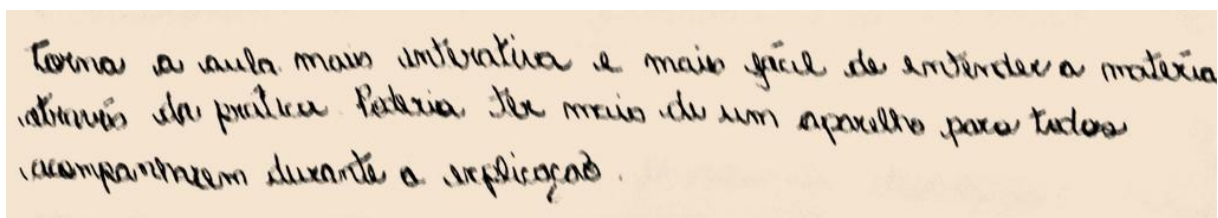 Torna a aula mais interativa e mais fácil de entender a matéria
através da prática Poderia ter mais de um aparelho para todos
acompanharem durante a explicação.